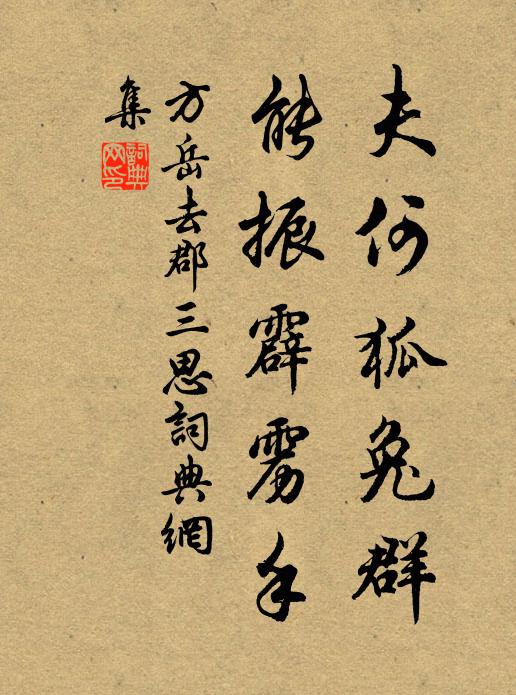 夫何狐兔群
能振霹雳手
方岳去郡三思詞典網
集
詞典網印